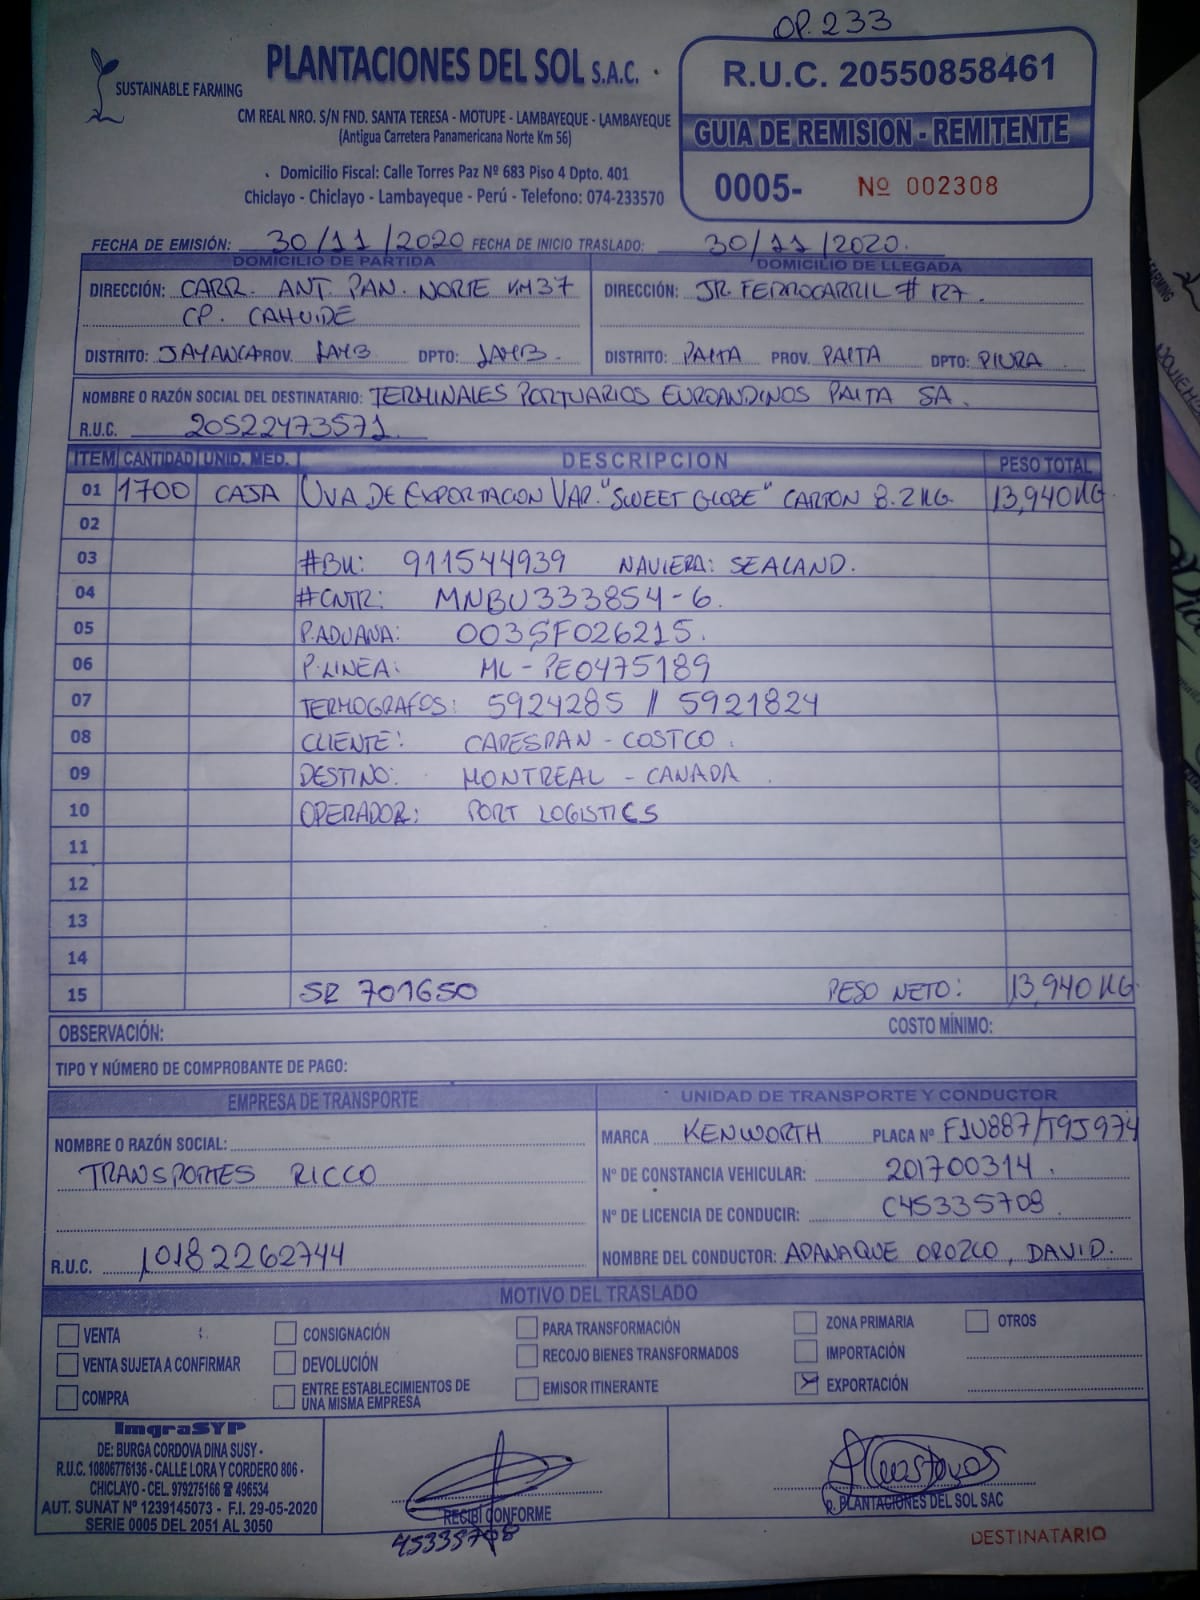 OP. 233
SUSTAINABLE FARMING
PLANTACIONES DEL SOL S.A.C.
CM REAL NRO. S/N FND. SANTA TERESA - MOTUPE - LAMBAYEQUE - LAMBAYEQUE
(Antigua Carretera Panamericana Norte Km 56)
Domicilio Fiscal: Calle Torres Paz Nº 683 Piso 4 Dpto. 401
Chiclayo - Chiclayo - Lambayeque - Perú - Telefono: 074-233570
R.U.C. 20550858461
GUIA DE REMISION - REMITENTE
0005- Nº 002308
FECHA DE EMISIÓN: 30/11/2020 FECHA DE INICIO TRASLADO: 30/11/2020.
DOMICILIO DE PARTIDA
DIRECCIÓN: CARR. ANT. PAN. NORTE KM 37
CP. CAHUIDE
DISTRITO: JAYANCA PROV. LAMB DPTO: LAMB.
DOMICILIO DE LLEGADA
DIRECCIÓN: JR. FERROCARRIL # 127.
DISTRITO: PAITA PROV. PAITA DPTO: PIURA
NOMBRE O RAZÓN SOCIAL DEL DESTINATARIO: TERMINALES PORTUARIOS EUROANDINOS PAITA SA.
R.U.C. 20522473571
ITEM CANTIDAD UNID. MED. DESCRIPCION PESO TOTAL
01 1700 CAJA UVA DE EXPORTACION VAR. "SWEET GLOBE" CARTON 8.2 KG. 13,940 KG
02
03 #BK: 911544939 NAVIERA: SEALAND.
04 #CNTR: MNBU333854-6.
05 P.ADUANA: 003SF026215.
06 P.LINEA: ML-PE0475189
07 TERMOGRAFOS: 5924285 // 5921824
08 CLIENTE: CAPESPAN - COSTCO.
09 DESTINO: MONTREAL - CANADA.
10 OPERADOR: PORT LOGISTICS
11
12
13
14
15 SR 701650 PESO NETO: 13,940 KG
OBSERVACIÓN: COSTO MÍNIMO:
TIPO Y NÚMERO DE COMPROBANTE DE PAGO:
EMPRESA DE TRANSPORTE
NOMBRE O RAZÓN SOCIAL:
TRANSPORTES RICCO
R.U.C. 10182262744
UNIDAD DE TRANSPORTE Y CONDUCTOR
MARCA KENWORTH PLACA Nº F1U887/T9J974
Nº DE CONSTANCIA VEHICULAR: 201700314.
Nº DE LICENCIA DE CONDUCIR: C45335708.
NOMBRE DEL CONDUCTOR: ADANAQUE OROZCO, DAVID.
MOTIVO DEL TRASLADO
VENTA CONSIGNACIÓN PARA TRANSFORMACIÓN ZONA PRIMARIA OTROS
VENTA SUJETA A CONFIRMAR DEVOLUCIÓN RECOJO BIENES TRANSFORMADOS IMPORTACIÓN
COMPRA ENTRE ESTABLECIMIENTOS DE UNA MISMA EMPRESA EMISOR ITINERANTE EXPORTACIÓN
ImgraSYP
DE: BURGA CORDOVA DINA SUSY -
R.U.C. 10806776136 - CALLE LORA Y CORDERO 806 -
CHICLAYO - CEL. 979275166 ☎ 496534
AUT. SUNAT Nº 1239145073 - F.I. 29-05-2020
SERIE 0005 DEL 2051 AL 3050
RECIBÍ CONFORME
45335708
p. PLANTACIONES DEL SOL SAC
DESTINATARIO